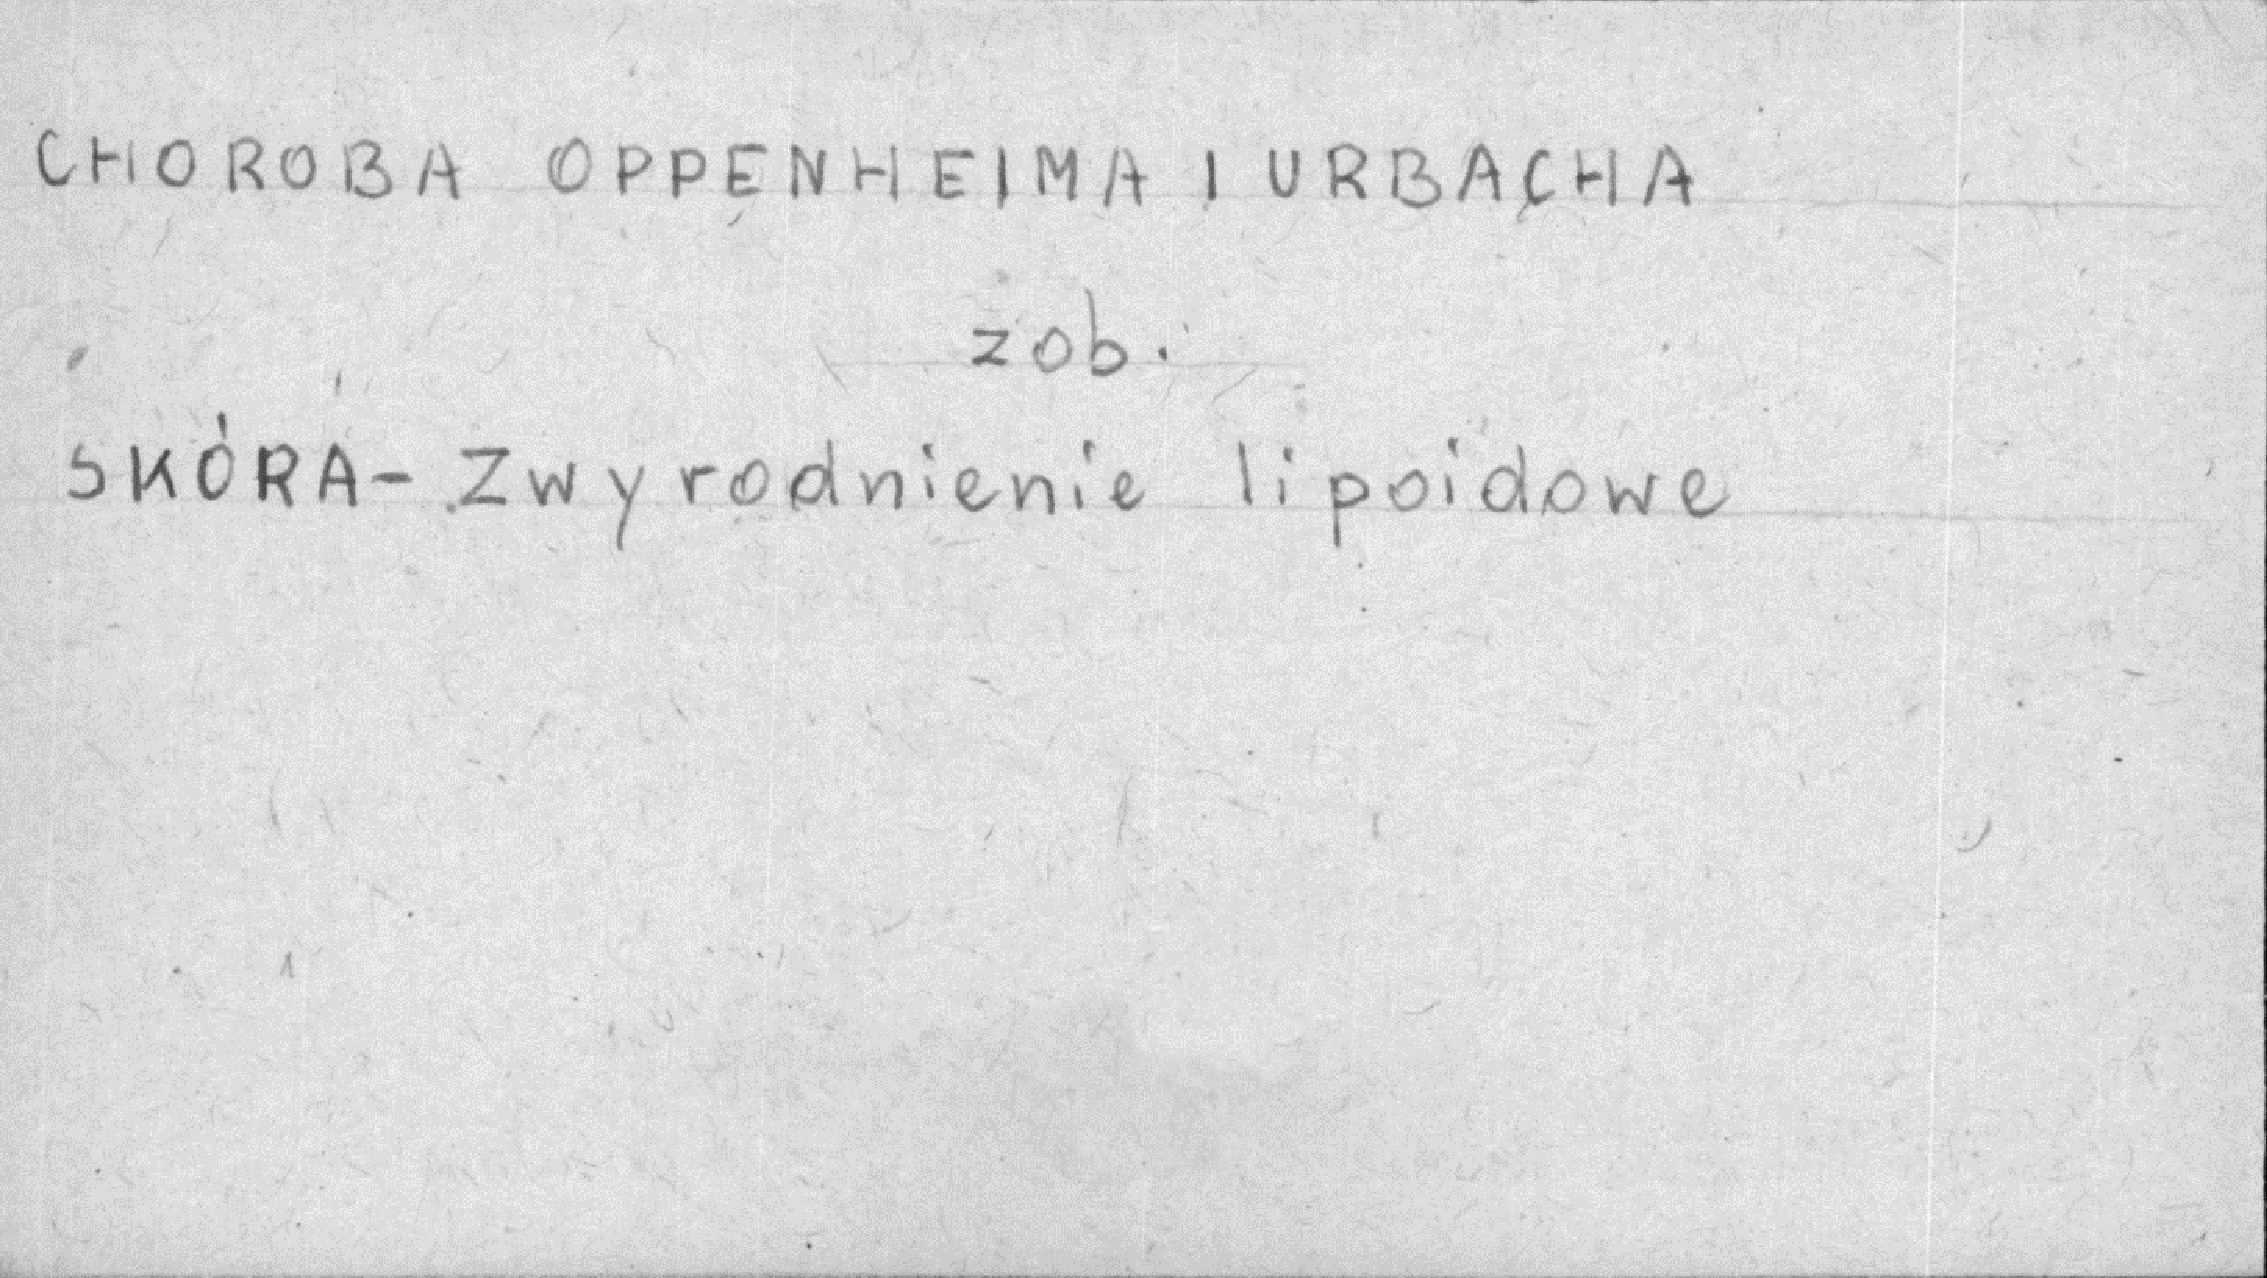 CHOROBA OPPENHEIMA I URBACHA
zob.
SKÓRA - Zwyrodnienie lipoidowe